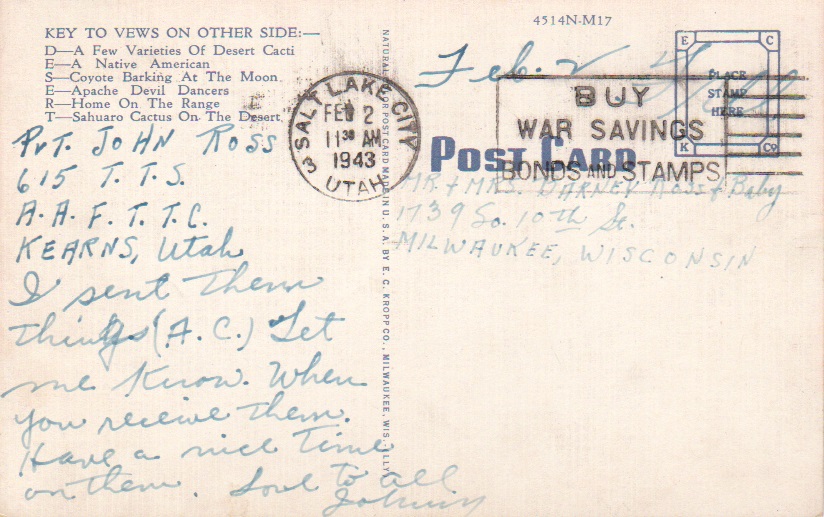 KEY TO VEWS ON OTHER SIDE:—
D—A Few Varieties Of Desert Cacti
E—A Native American
S—Coyote Barking At The Moon.
E—Apache Devil Dancers
R—Home On The Range
T—Sahuaro Cactus On The Desert.
PVT. JOHN ROSS
615 T. T. S.
A. A. F. T. T. C.
KEARNS, Utah
I sent them
things (A.C.) Let
me Know. When
you receive them.
Have a nice time
on them. Love to all
Johnny
NATURAL COLOR POST CARD MADE IN U. S. A. BY E. C. KROPP CO., MILWAUKEE, WIS.
SALT LAKE CITY
3
FEB 2
11 30 AM
1943
UTAH
4514N-M17
Feb. 2
E C
PLACE
STAMP
HERE
K Co
BUY
WAR SAVINGS
BONDS AND STAMPS
POST CARD
MR. + MRS. BARNEY ROSS + Baby
1739 So. 10th St.
MILWAUKEE, WISCONSIN